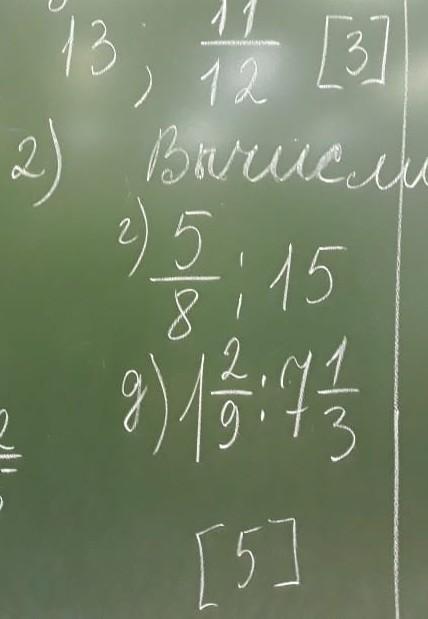 13; 11/12 [3]
2) Вычисли
г) 5/8 : 15
д) 1 2/9 : 7 1/3
[5]